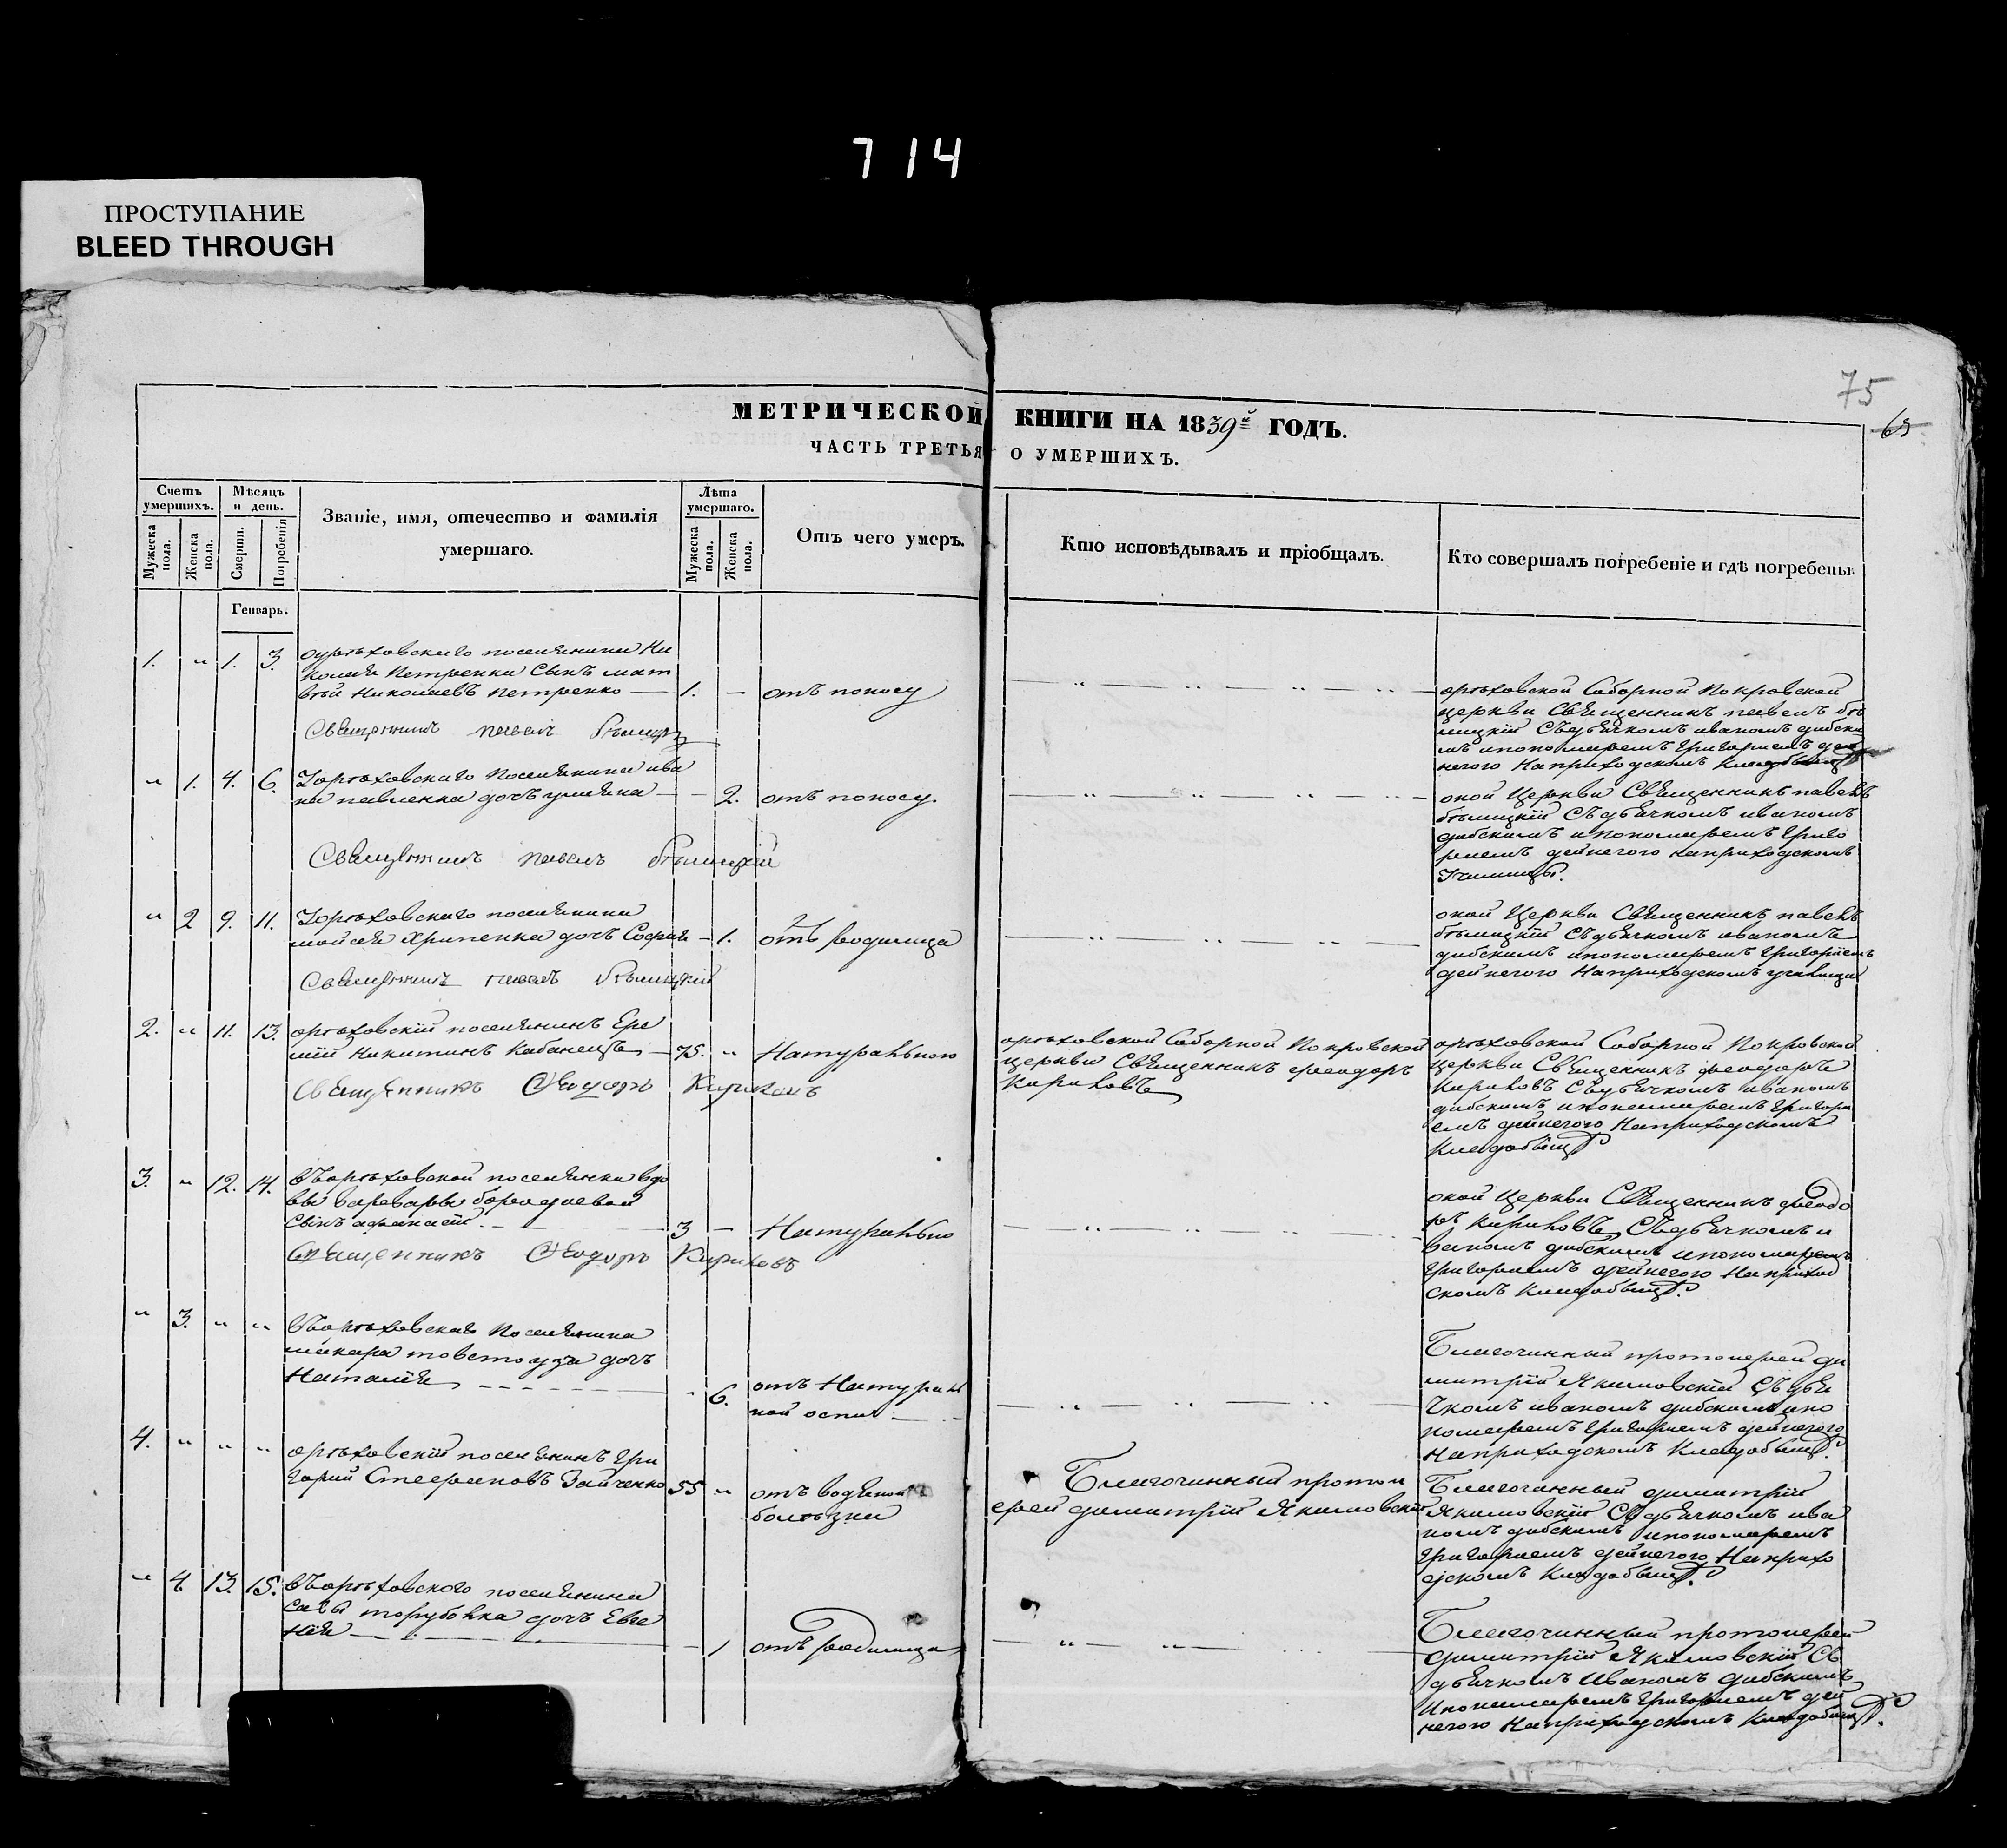 714
ПРОСТУПАНИЕ
BLEED THROUGH
75
65
МЕТРИЧЕСКОЙ КНИГИ НА 1839й ГОДЪ.
ЧАСТЬ ТРЕТЬЯ О УМЕРШИХЪ.
Счетъ умершихъ.
Мужеска пола.
Женска пола.
Мѣсяцъ и день.
Смерти.
Погребенія
Званіе, имя, отечество и фамилія
умершаго.
Лѣта умершаго.
Мужеска пола.
Женска пола.
Отъ чего умеръ.
Кто исповѣдывалъ и пріобщалъ.
Кто совершалъ погребеніе и гдѣ погребены.
Генварь.
1. " 1. 3.
орѣховскаго поселянина Ни
колая Петренка Сынъ мат
вѣй Николаевъ Петренко — 1. — отъ поносу
Священникъ павелъ
орѣховской Соборной Покровской
церкви Священникъ павелъ бѣ
лицкій Съдьячкомъ иваномъ дибски
мъ ипономаремъ Григоріемъ дей
негою Наприходскомъ Кладбищѣ
" 1. 4. 6.
Уорѣховскаго Поселянина ива
на павленка дочь ульяна — — 2. отъ поносу.
Священникъ павелъ бѣлицкій
оной Церкви Священникъ павелъ
бѣлицкій Съдьячкомъ иваномъ
дибскимъ ипономаремъ Григо
ріемъ дейнегою наприходскомъ
" 2 9. 11.
Уорѣховскаго поселянина
мойсея Хрипенка дочь Софія — 1. отъ родимца
Священникъ павелъ бѣлицкій
оной Церкви Священникъ павелъ
бѣлицкій Съдьячкомъ иваномъ
дибскимъ ипономаремъ Григоріемъ
дейнегою Наприходскомъ
2. " 11. 13.
орѣховскій поселянинъ Ере
мій Никитинъ Кабанецъ — 75. " Натурально
Священникъ Ѳеодоръ Кириковъ
орѣховской Соборной Покровской
церкви Священникъ феодоръ
Кириковъ
орѣховской Соборной Покровской
Церкви Священникъ феодоръ
Кириковъ Съдьячкомъ иваномъ
дибскимъ ипономаремъ Григорі
емъ дейнегою Наприходскомъ
Кладбищѣ
3. " 12. 14.
Въорѣховской поселянки вдо
вы варвары
Сынъ афанасій. — 3 — Натурально
Священникъ Ѳеодоръ Кириковъ
оной Церкви Священникъ феодо
ръ Кириковъ Съдьячкомъ и
ваномъ дибскимъ ипономаремъ
Григоріемъ дейнегою Наприход
скомъ Кладбищѣ.
" 3. " "
Въорѣховскаго Поселянина
макара товстоуза дочь
Наталія — " 6. отъ Натураль
ной оспы
Благочинный протоіерей ди
митрій Якимовскій Съдья
чкомъ иваномъ дибскимъ ипо
номаремъ Григоріемъ дейнегою
Наприходскомъ Кладбищѣ.
4. " " "
орѣховскій поселянинъ Гри
горий Стефановъ Зайченко 55 " отъ водяной
болѣзни
Благочинный протои
ерей димитрій Якимовскій
Благочинный димитрій
Якимовскій Съдьячкомъ ива
номъ дибскимъ ипономаремъ
Григоріемъ дейнегою Наприхо
дскомъ Кладбищѣ.
" 4. 13. 15.
Въорѣховского поселянина
савы торубойка дочь Евге
нія — 1 отъ родимца
Благочинный протоіерей
димитрій Якимовскій Съ
дьячкомъ Иваномъ дибскимъ
Ипономаремъ Григоріемъ дей
негою Наприходскомъ Кладбищѣ.